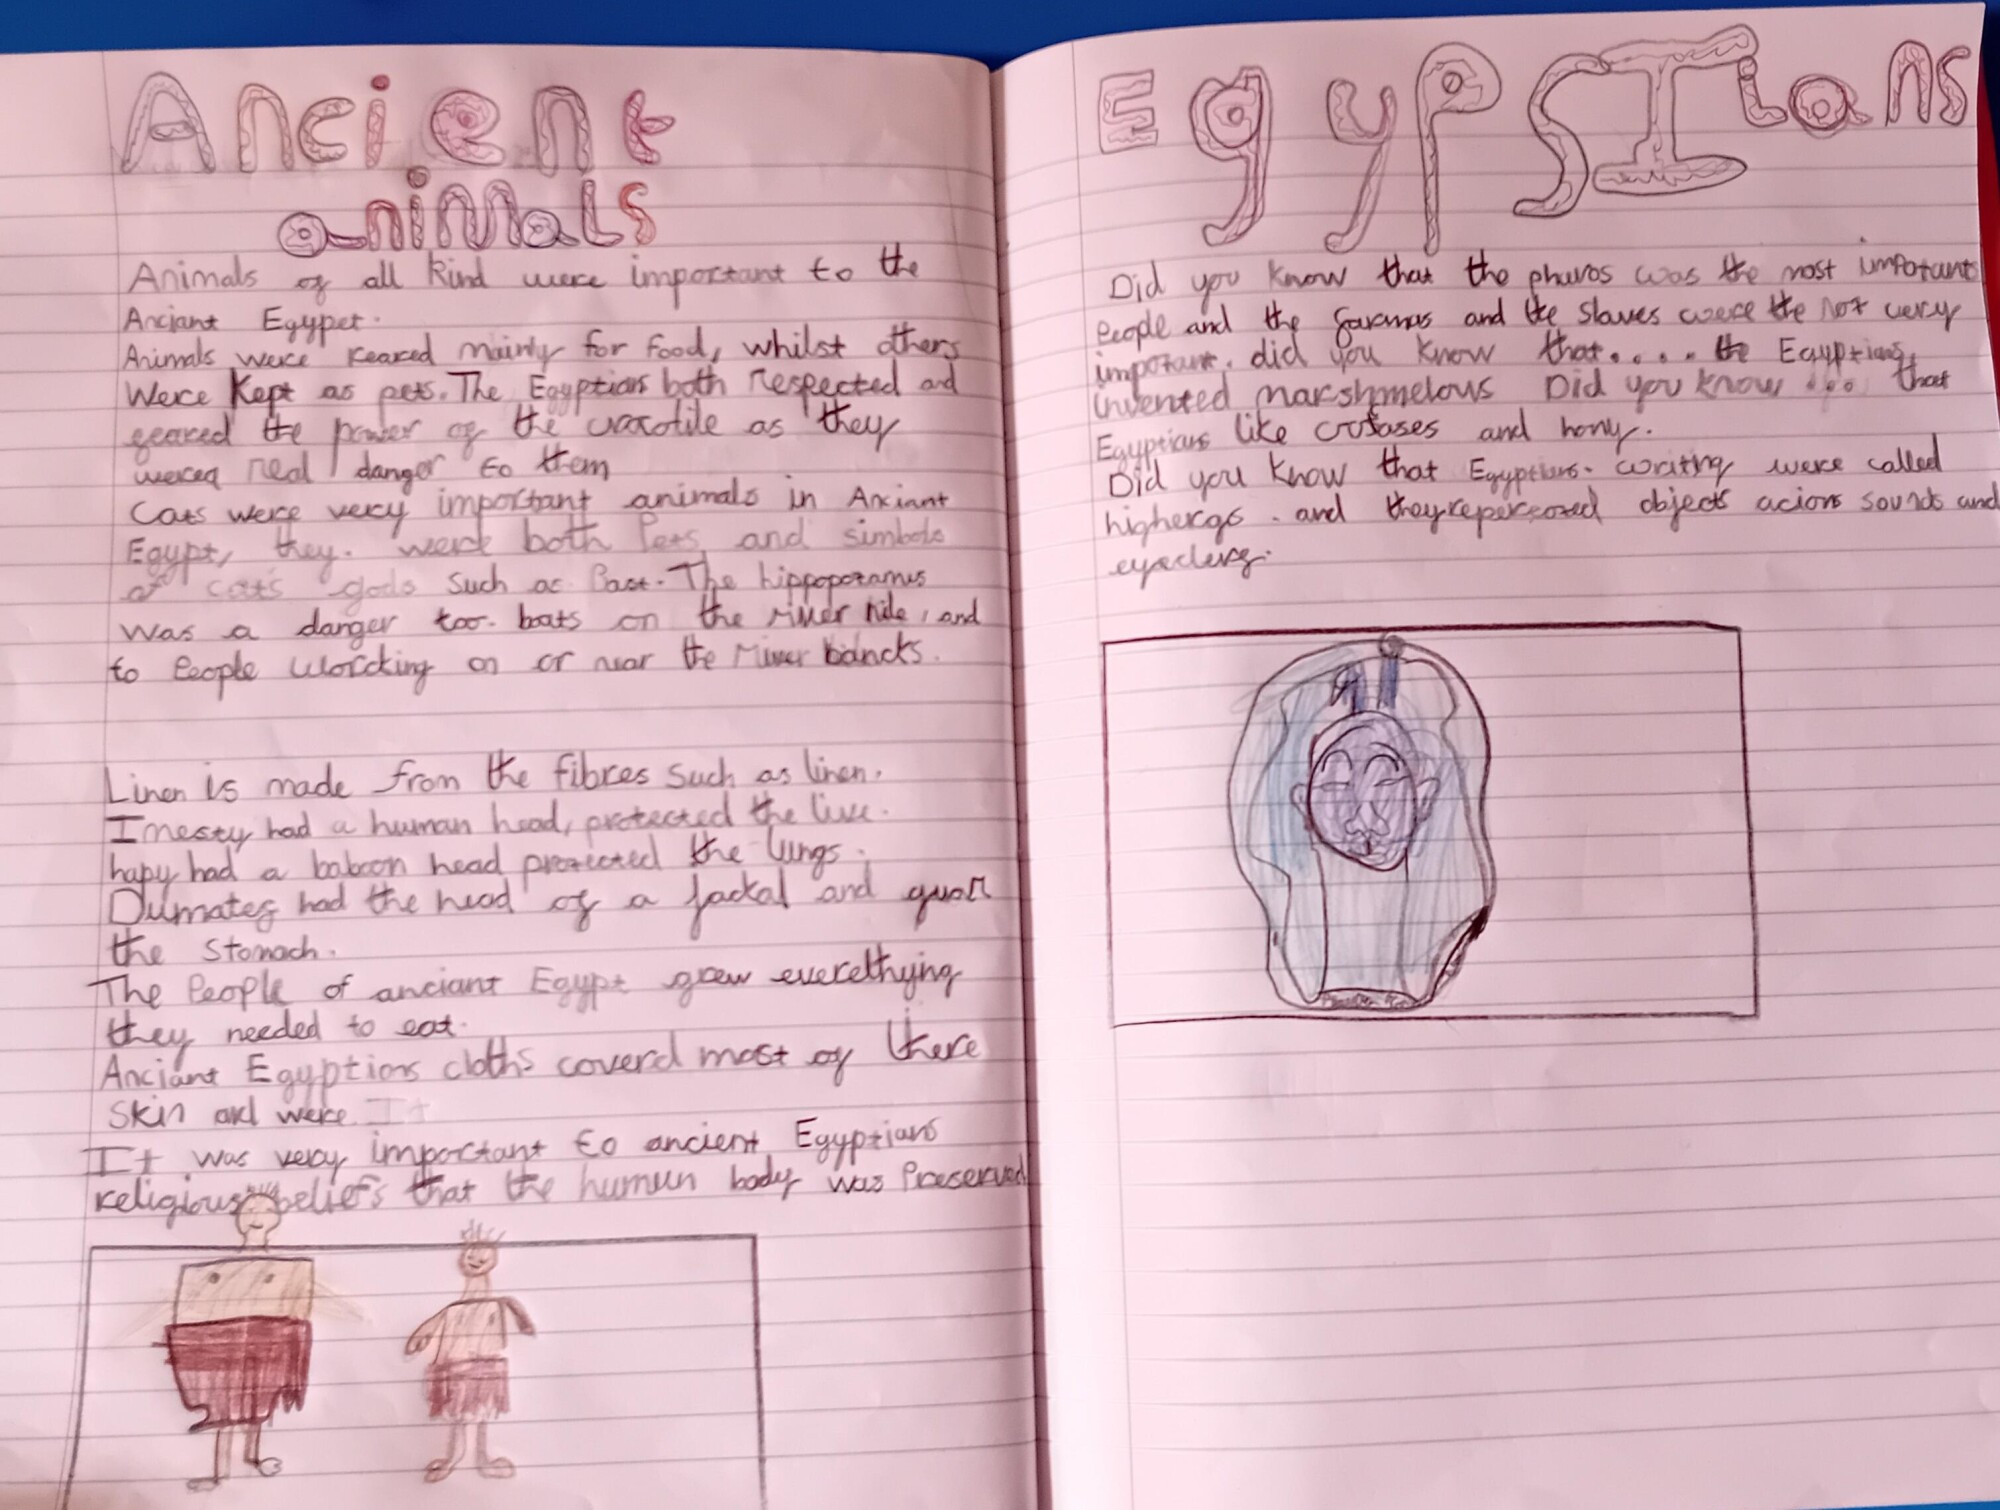 Ancient
animals
Animals of all kind were important to the
Anciant Egypet.
Animals were reared mainly for food, whilst others
were kept as pets. The Egyptians both respected and
feared the power of the crocotile as they
were a real danger to them
Cats were very important animals in Anciant
Egypt, they. were both Pets and simbols
of cats gods such as Bast. The hippopotamus
was a danger too. boats on the river nile, and
to People worcking on or near the river bancks.
Linen is made from the fibres such as linen.
Imesty had a human head, protected the live.
hapy had a baboon head protected the lungs.
Dumatef had the head of a jackal and guar
the stomach.
The People of anciant Egypt grew everethying
they needed to eat.
Anciant Egyptions cloths coverd most of there
skin and were It
It was very important to ancient Egyptians
religious beliefs that the human body was Preserved
EgypSIans
Did you know that the pharos was the most impotant
People and the farmas and the slaves were the not very
important. did you know that.... the Egyptians
invented marshmelous Did you know ... that
Egyptians like and hony.
Did you know that Egyptians. writing were called
highergs. and they reperezozed objects acions sounds and